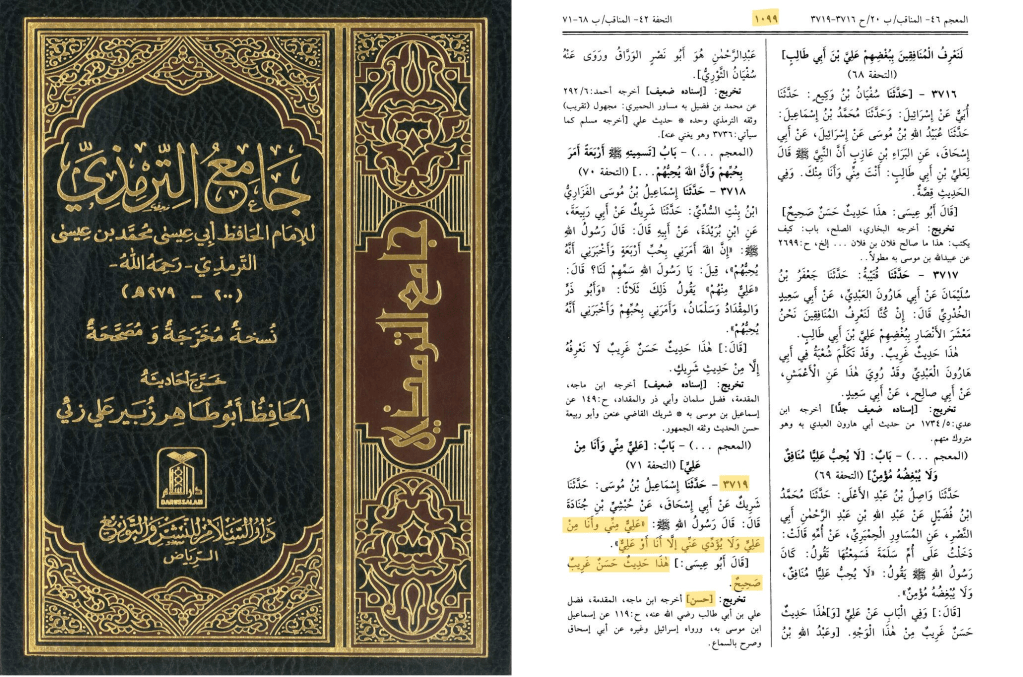 جَامِعُ التِّرْمِذِيِّ
للإمام الحافظ أبي عيسى محمد بن عيسى
الترمذي - رحمه الله -
(٢٠٠ - ٢٧٩هـ)
نُسخةٌ مُخَرَّجَةٌ وَ مُصَحَّحَةٌ
خرّج أحاديثه
الحَافِظُ أبُو طَاهِر زُبَير عَلِي زَئِي
دار السلام
DARUSSALAM
دَارُ السَّلَامِ لِلنَّشْرِ وَالتَّوْزِيعِ
الرِّيَاض
جامع الترمذي
المعجم ٤٦- المناقب/ب ٢٠/ح ٣٧١٦-٣٧١٩
١٠٩٩
التحفة ٤٢- المناقب/ ب ٦٨-٧١
لَنَعْرِفُ الْمُنَافِقِينَ بِبُغْضِهِمْ عَلِيَّ بْنَ أَبِي طَالِبٍ]
(التحفة ٦٨)
٣٧١٦ - [حَدَّثَنَا سُفْيَانُ بْنُ وَكِيعٍ: حَدَّثَنَا
أُبَيُّ عَنْ إِسْرَائِيلَ: وَحَدَّثَنَا مُحَمَّدُ بْنُ إِسْمَاعِيلَ:
حَدَّثَنَا عُبَيْدُ اللهِ بْنُ مُوسَى عَنْ إِسْرَائِيلَ، عَنْ أَبِي
إِسْحَاقَ، عَنِ الْبَرَاءِ بْنِ عَازِبٍ أَنَّ النَّبِيَّ ﷺ قَالَ
لِعَلِيِّ بْنِ أَبِي طَالِبٍ: أَنْتَ مِنِّي وَأَنَا مِنْكَ. وَفِي
الْحَدِيثِ قِصَّةٌ.
[قَالَ أَبُو عِيسَى: هَذَا حَدِيثٌ حَسَنٌ صَحِيحٌ]
تخريج: أخرجه البخاري، الصلح، باب: كيف
يكتب: هذا ما صالح فلان بن فلان ... إلخ، ح:٢٦٩٩
عن عبيدالله بن موسى به مطولاً..
٣٧١٧ - حَدَّثَنَا قُتَيْبَةُ: حَدَّثَنَا جَعْفَرُ بْنُ
سُلَيْمَانَ عَنْ أَبِي هَارُونَ الْعَبْدِيِّ، عَنْ أَبِي سَعِيدٍ
الْخُدْرِيِّ قَالَ: إِنْ كُنَّا لَنَعْرِفُ الْمُنَافِقِينَ نَحْنُ
مَعْشَرَ الأَنْصَارِ بِبُغْضِهِمْ عَلِيَّ بْنَ أَبِي طَالِبٍ.
هَذَا حَدِيثٌ غَرِيبٌ. وَقَدْ تَكَلَّمَ شُعْبَةُ فِي أَبِي
هَارُونَ الْعَبْدِيِّ وَقَدْ رُوِيَ هَذَا عَنِ الأَعْمَشِ،
عَنْ أَبِي صَالِحٍ، عَنْ أَبِي سَعِيدٍ.
تخريج: [إسناده ضعيف جدًّا] أخرجه ابن
عدي:٥/١٧٣٤ من حديث أبي هارون العبدي به وهو
متروك متهم.
(المعجم ...) - بَابُ: [لَا يُحِبُّ عَلِيًّا مُنَافِقٌ
وَلَا يُبْغِضُهُ مُؤْمِنٌ] (التحفة ٦٩)
حَدَّثَنَا وَاصِلُ بْنُ عَبْدِ الأَعْلَى: حَدَّثَنَا مُحَمَّدُ
ابْنُ فُضَيْلٍ عَنْ عَبْدِ اللهِ بْنِ عَبْدِ الرَّحْمَنِ أَبِي
النَّضْرِ، عَنِ الْمُسَاوِرِ الْحِمْيَرِيِّ، عَنْ أُمِّهِ قَالَتْ:
دَخَلْتُ عَلَى أُمِّ سَلَمَةَ فَسَمِعْتُهَا تَقُولُ: كَانَ
رَسُولُ اللهِ ﷺ يَقُولُ: «لَا يُحِبُّ عَلِيًّا مُنَافِقٌ،
وَلَا يُبْغِضُهُ مُؤْمِنٌ».
[قَالَ:] وَفِي الْبَابِ عَنْ عَلِيٍّ [وَ]هَذَا حَدِيثٌ
حَسَنٌ غَرِيبٌ مِنْ هَذَا الْوَجْهِ. [وعَبْدُ اللهِ بْنُ
عَبْدِالرَّحْمَنِ هُوَ أَبُو نَصْرٍ الوَرَّاقُ وَرَوَى عَنْهُ
سُفْيَانُ الثَّوْرِيُّ].
تخريج: [إسناده ضعيف] أخرجه أحمد:٦/٢٩٢
عن محمد بن فضيل به مساور الحميري: مجهول (تقريب)
وثقه الترمذي وحده * حديث علي [أخرجه مسلم كما
سيأتي:٣٧٣٦ وهو يغني عنه].
(المعجم ...) - بَابُ [تَسْمِيَتِهِ ﷺ أَرْبَعَةً أَمَرَ
بِحُبِّهِمْ وَأَنَّ اللهَ يُحِبُّهُمْ...] (التحفة ٧٠)
٣٧١٨ - حَدَّثَنَا إِسْمَاعِيلُ بْنُ مُوسَى الفَزَارِيُّ
ابْنُ بِنْتِ السُّدِّيِّ: حَدَّثَنَا شَرِيكٌ عَنْ أَبِي رَبِيعَةَ،
عَنِ ابْنِ بُرَيْدَةَ، عَنْ أَبِيهِ قَالَ: قَالَ رَسُولُ اللهِ
ﷺ: «إِنَّ اللهَ أَمَرَنِي بِحُبِّ أَرْبَعَةٍ وَأَخْبَرَنِي أَنَّهُ
يُحِبُّهُمْ»، قِيلَ: يَا رَسُولَ اللهِ سَمِّهِمْ لَنَا؟ قَالَ:
«عَلِيٌّ مِنْهُمْ» يَقُولُ ذَلِكَ ثَلَاثًا: «وَأَبُو ذَرٍّ
وَالمِقْدَادُ وَسَلْمَانُ، وَأَمَرَنِي بِحُبِّهِمْ وَأَخْبَرَنِي أَنَّهُ
يُحِبُّهُمْ».
[قَالَ:] هَذَا حَدِيثٌ حَسَنٌ غَرِيبٌ لَا نَعْرِفُهُ
إِلَّا مِنْ حَدِيثِ شَرِيكٍ.
تخريج: [إسناده ضعيف] أخرجه ابن ماجه،
المقدمة، فضل سلمان وأبي ذر والمقداد، ح:١٤٩ عن
إسماعيل بن موسى به * شريك القاضي عنعن وأبو ربيعة
حسن الحديث وثقه الجمهور.
(المعجم ...) - بَابُ: [عَلِيٌّ مِنِّي وَأَنَا مِنْ
عَلِيٍّ] (التحفة ٧١)
٣٧١٩ - حَدَّثَنَا إِسْمَاعِيلُ بْنُ مُوسَى: حَدَّثَنَا
شَرِيكٌ عَنْ أَبِي إِسْحَاقَ، عَنْ حُبْشِيِّ بْنِ جُنَادَةَ
قَالَ: قَالَ رَسُولُ اللهِ ﷺ: «عَلِيٌّ مِنِّي وَأَنَا مِنْ
عَلِيٍّ وَلَا يُؤَدِّي عَنِّي إِلَّا أَنَا أَوْ عَلِيٌّ».
[قَالَ أَبُو عِيسَى:] هَذَا حَدِيثٌ حَسَنٌ غَرِيبٌ
صَحِيحٌ.
تخريج: [حسن] أخرجه ابن ماجه، المقدمة، فضل
علي بن أبي طالب رضي الله عنه، ح:١١٩ عن إسماعيل
ابن موسى به، ورواه إسرائيل وغيره عن أبي إسحاق
وصرح بالسماع.